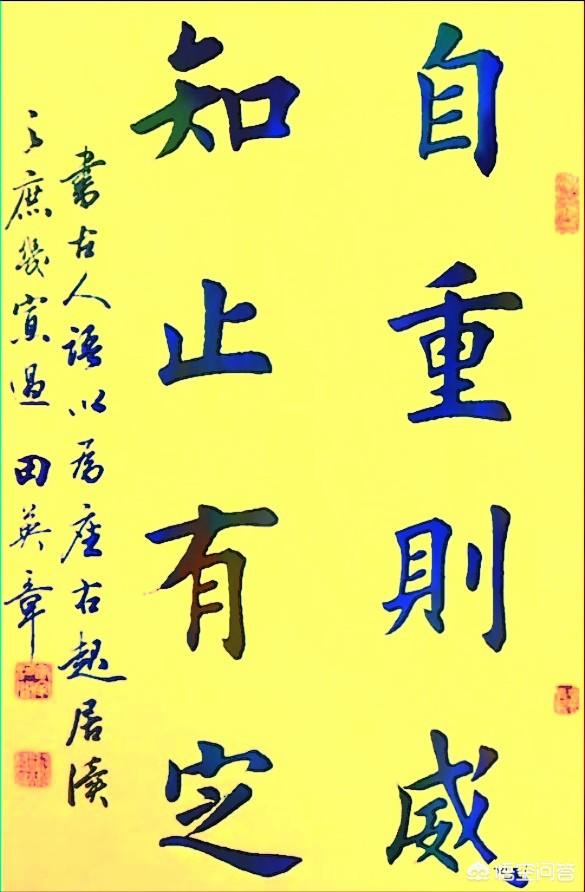 自重則威
知止有定
書古人語以爲座右起居讀
之庶幾寡過 田英章
悟空问答